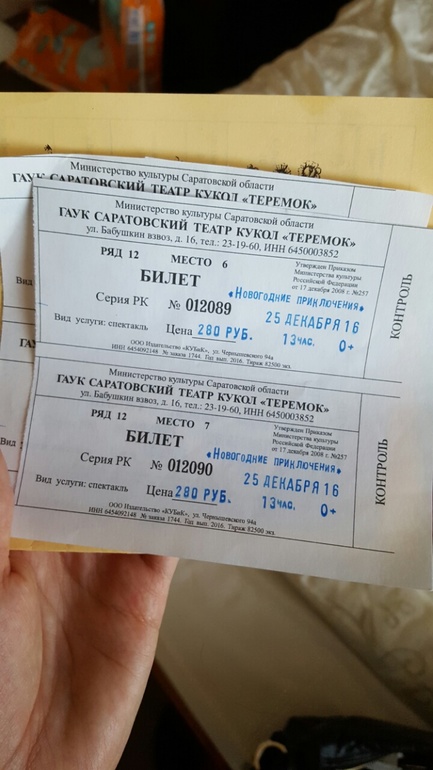 Министерство культуры Саратовской области
ГАУК САРАТОВСКИЙ ТЕАТР КУКОЛ «ТЕРЕМОК»
Вид
ГА
Вид
Министерство культуры Саратовской области
ГАУК САРАТОВСКИЙ ТЕАТР КУКОЛ «ТЕРЕМОК»
ул. Бабушкин взвоз, д. 16, тел.: 23-19-60, ИНН 6450003852
РЯД 12 МЕСТО 6
Утвержден Приказом
Министерства культуры
Российской Федерации
от 17 декабря 2008 г. №257
БИЛЕТ
Серия РК № 012089
«НОВОГОДНИЕ ПРИКЛЮЧЕНИЯ»
25 ДЕКАБРЯ 16
Вид услуги: спектакль Цена 280 РУБ. 13ЧАС. 0+
ООО Издательство «КУБиК», ул. Чернышевского 94а
ИНН 6454092148 № заказа 1744. Год вып. 2016. Тираж 82500 экз.
КОНТРОЛЬ
Министерство культуры Саратовской области
ГАУК САРАТОВСКИЙ ТЕАТР КУКОЛ «ТЕРЕМОК»
ул. Бабушкин взвоз, д. 16, тел.: 23-19-60, ИНН 6450003852
РЯД 12 МЕСТО 7
Утвержден Приказом
Министерства культуры
Российской Федерации
от 17 декабря 2008 г. №257
БИЛЕТ
Серия РК № 012090
«НОВОГОДНИЕ ПРИКЛЮЧЕНИЯ»
25 ДЕКАБРЯ 16
Вид услуги: спектакль Цена 280 РУБ. 13ЧАС. 0+
ООО Издательство «КУБиК», ул. Чернышевского 94а
ИНН 6454092148 № заказа 1744. Год вып. 2016. Тираж 82500 экз.
КОНТРОЛЬ